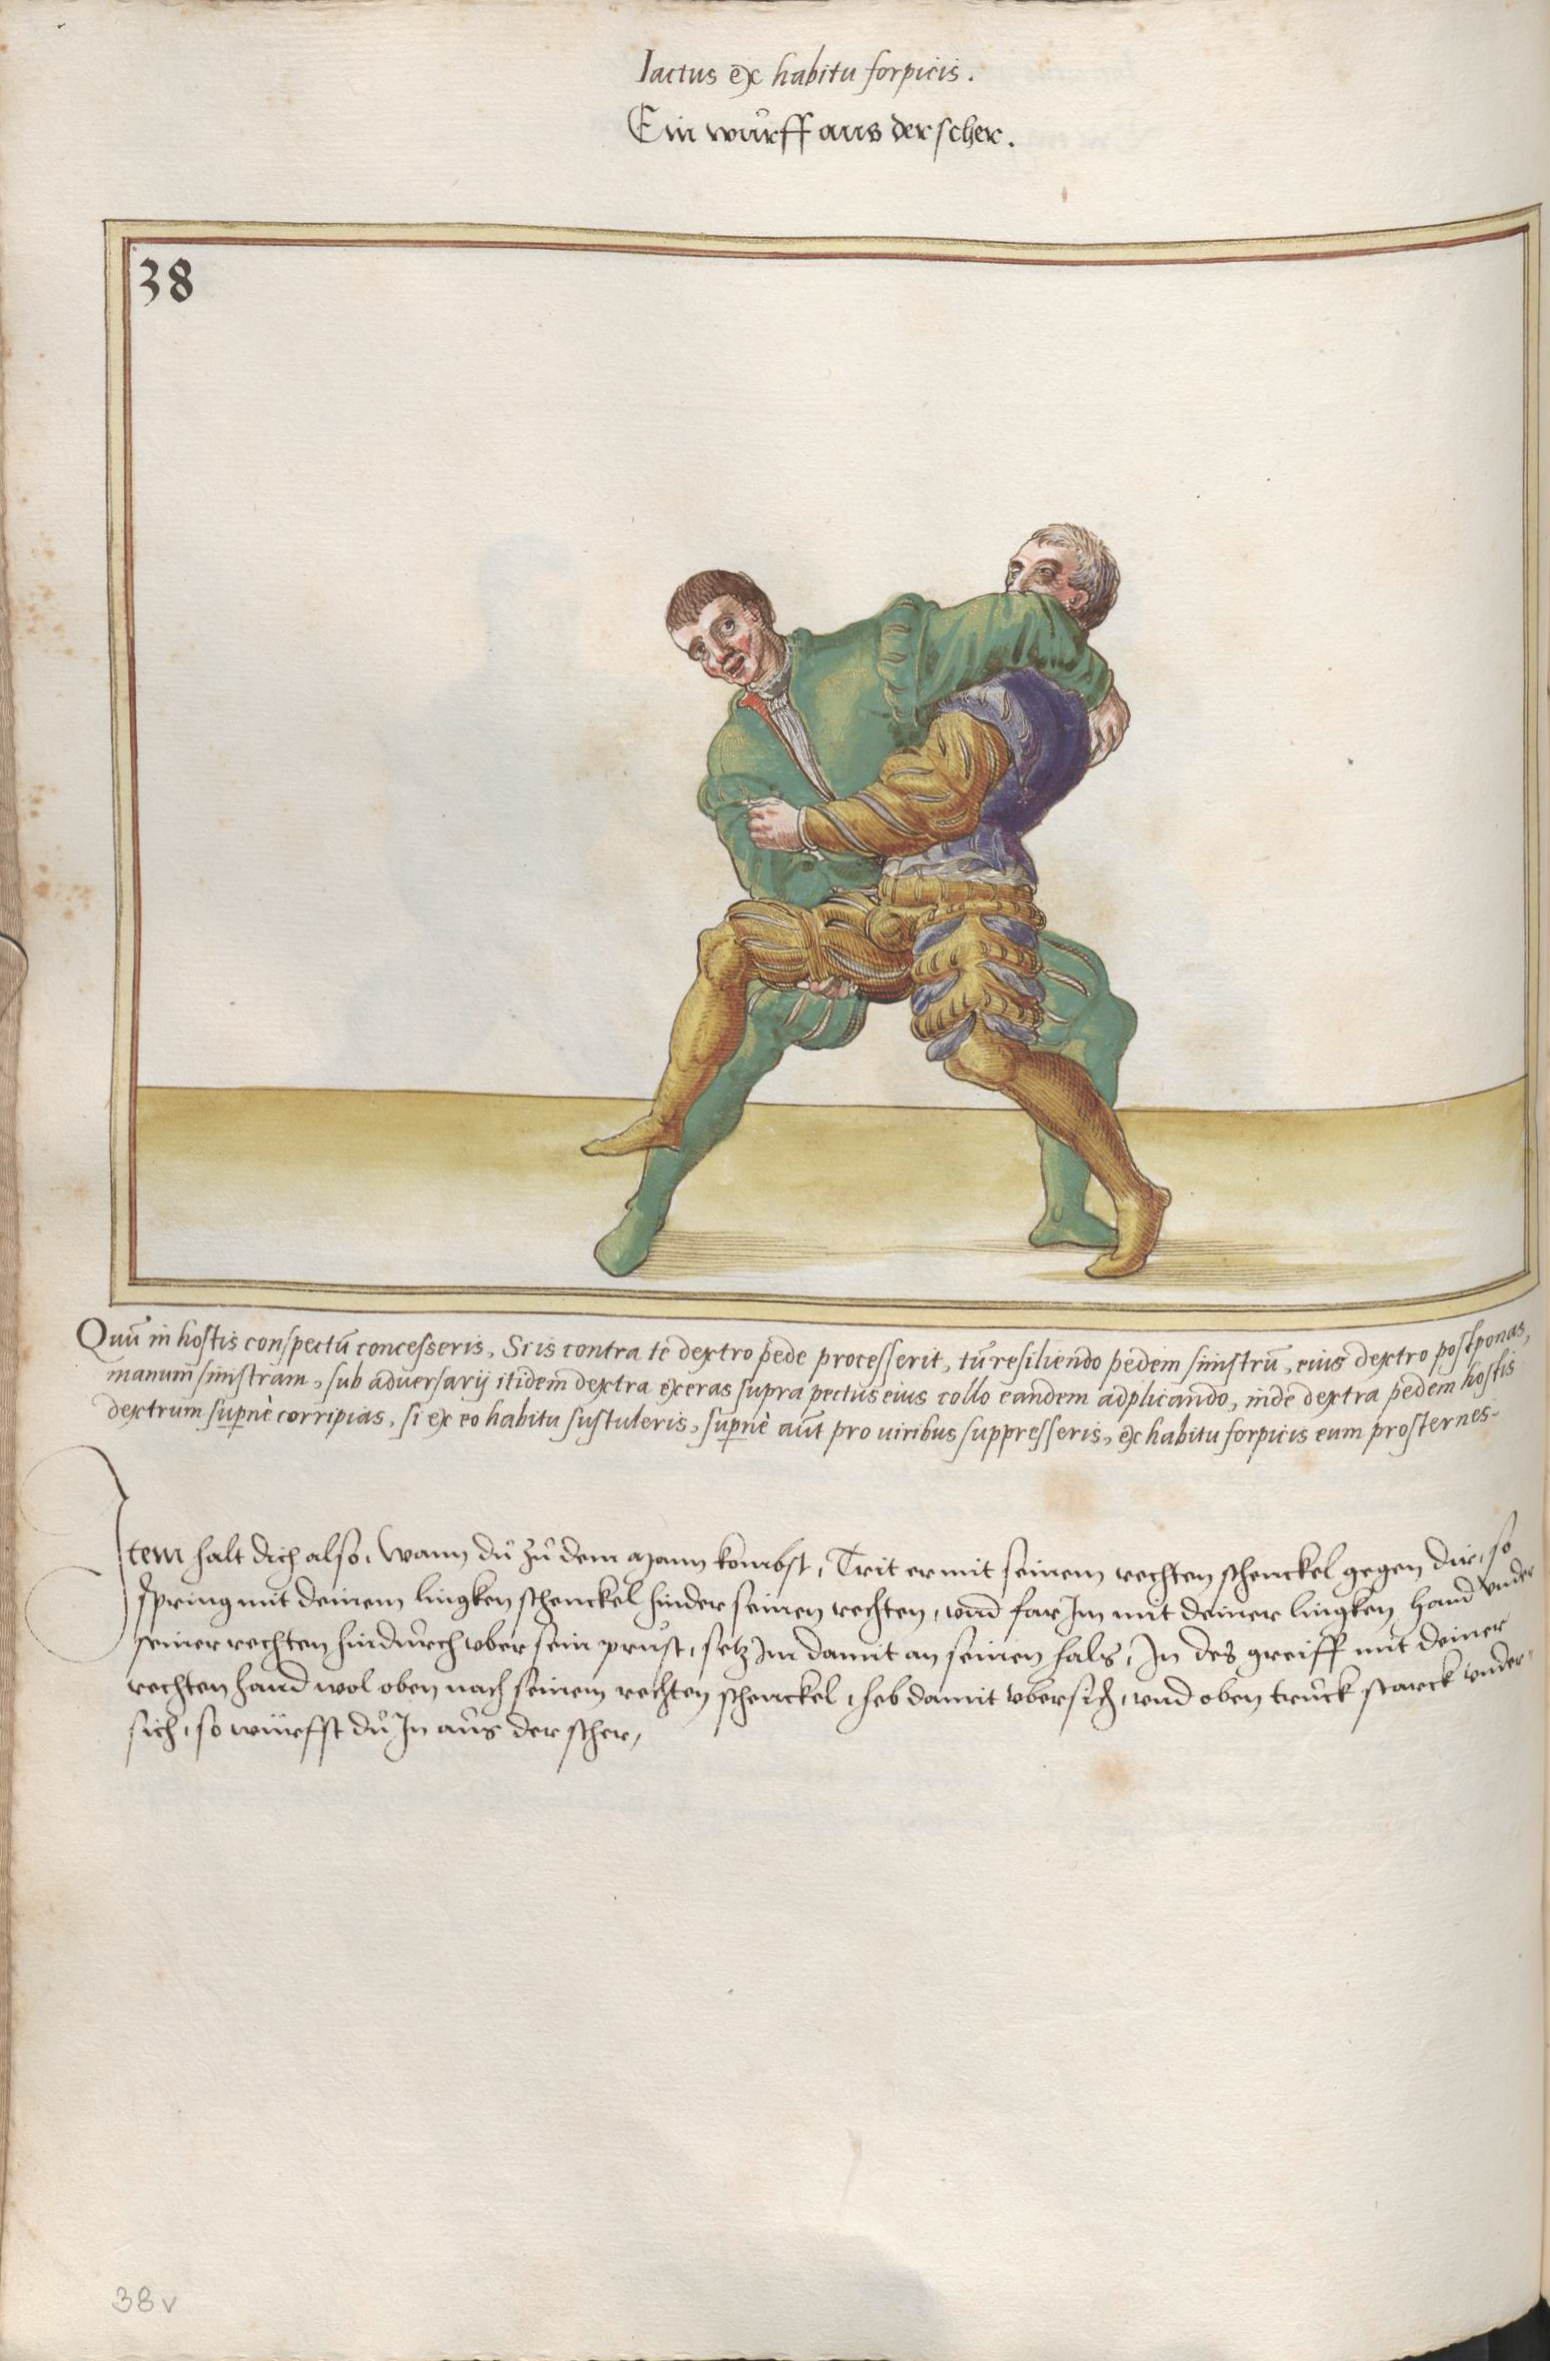 Iactus ex habitu forpicis.
Ein wůrff aus der scher.
38
Quū in hostis conspectū concesseris, Si is contra te dextro pede processerit, tū resiliendo pedem sinistrū, eius dextro postponas,
manum sinistram, sub aduersarij itidem dextra exeras supra pectus eius collo eandem adplicando, inde dextra pedem hostis
dextrum supernè corripias, si ex eo habitu sustuleris, supernè aūt pro uiribus suppresseris, ex habitu forpicis eum prosternes.
Item halt dich also, Wann dů zů dem mann kombst, Trit er mit seinem rechten schenckel gegen dir, so
spring mit deinem lingken schenckel hinder seinen rechten, vnd far Im mit deiner lingken hand vnder
seiner rechten hindůrch vber sein průst, setz Im damit an seinen hals, In des greiff mit deiner
rechten hand wol oben nach seinem rechten schenckel, heb damit vbersich, vnd oben trůck starck vnder
sich, so würffst dů In aůs der scher,
38v